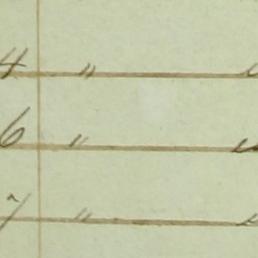 4 "
6 "
7 "